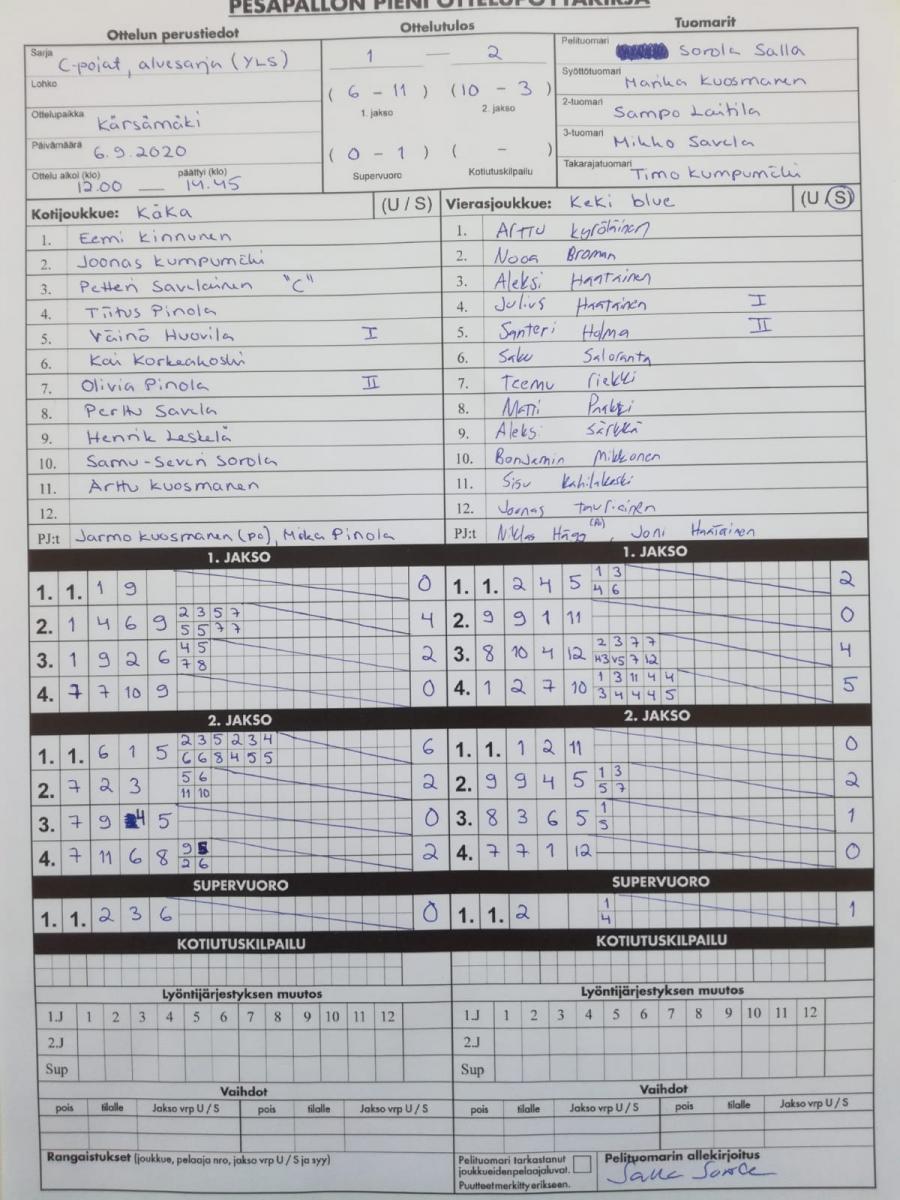 PESÄPALLON PIENI OTTELUPÖYTÄKIRJA
Ottelun perustiedot
Sarja
C-pojat, aluesarja (YLS)
Lohko
Ottelupaikka
Kärsämäki
Päivämäärä
6.9.2020
Ottelu alkoi (klo) päättyi (klo)
12.00 — 14.45
Ottelutulos
1 — 2
( 6 - 11 ) (10 - 3 )
1. jakso 2. jakso
( 0 - 1 ) ( - )
Supervuoro Kotiutuskilpailu
Tuomarit
Pelituomari
Sorola Salla
Syöttötuomari
Marika Kuosmanen
2-tuomari
Sampo Laitila
3-tuomari
Mikko Savela
Takarajatuomari
Timo Kumpumäki
Kotijoukkue: Käka (U / S)
1. Eemi Kinnunen
2. Joonas Kumpumäki
3. Petteri Savolainen "C"
4. Tiitus Pinola
5. Väinö Huovila I
6. Kai Korkeakoski
7. Olivia Pinola II
8. Perttu Savela
9. Henrik Leskelä
10. Samu-Severi Sorola
11. Arttu Kuosmanen
12.
PJ:t Jarmo Kuosmanen (PO), Mika Pinola
Vierasjoukkue: Keki blue (U / S)
1. Arttu Kyröläinen
2. Nooa Broman
3. Aleksi Haatainen
4. Julius Haatainen I
5. Santeri Holma II
6. Saku Saloranta
7. Teemu Riekki
8. Matti
9. Aleksi Särkkä
10. Benjamin Mikkonen
11. Sisu
12. Joonas
PJ:t Niklas Hägg (PO), Joni Haatainen
1. JAKSO
1. 1. 1 9 0
2. 1 4 6 9 2 3 5 7 4
5 5 7 7
3. 1 9 2 6 4 5 2
7 8
4. 7 7 10 9 0
2. JAKSO
1. 1. 6 1 5 2 3 5 2 3 4 6
6 6 8 4 5 5
2. 7 2 3 5 6 2
11 10
3. 7 9 4 5 0
4. 7 11 6 8 9 5 2
2 6
SUPERVUORO
1. 1. 2 3 6 0
1. JAKSO
1. 1. 2 4 5 1 3 2
4 6
2. 9 9 1 11 0
3. 8 10 4 12 2 3 7 7 4
7 12
4. 1 2 7 10 1 3 11 4 4 5
3 4 4 4 5
2. JAKSO
1. 1. 1 2 11 0
2. 9 9 4 5 1 3 2
5 7
3. 8 3 6 5 1 1
5
4. 7 7 1 12 0
SUPERVUORO
1. 1. 2 1 1
4
KOTIUTUSKILPAILU
Lyöntijärjestyksen muutos
1.J 1 2 3 4 5 6 7 8 9 10 11 12
2.J
Sup
Vaihdot
pois tilalle Jakso vrp U / S pois tilalle Jakso vrp U / S
KOTIUTUSKILPAILU
Lyöntijärjestyksen muutos
1.J 1 2 3 4 5 6 7 8 9 10 11 12
2.J
Sup
Vaihdot
pois tilalle Jakso vrp U / S pois tilalle Jakso vrp U / S
Rangaistukset (joukkue, pelaaja nro, jakso vrp U / S ja syy)
Pelituomari tarkastanut
joukkueidenpelaajaluvat.
Puutteetmerkitty erikseen.
Pelituomarin allekirjoitus
Salla Sorola